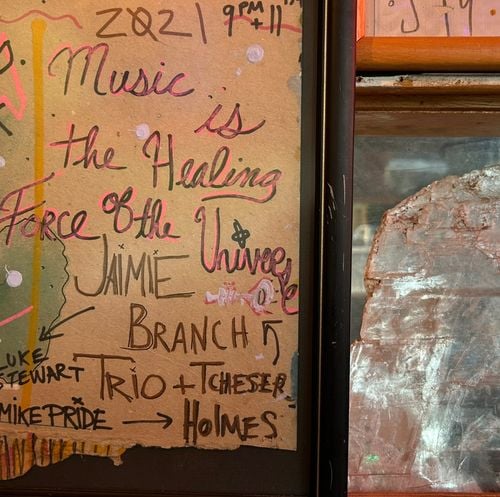 2021 9PM + 11PM
Music
is
the Healing
Force of the Universe
JAIMIE
BRANCH
LUKE
STEWART
TRIO + TCHESER
MIKE PRIDE → HOLMES